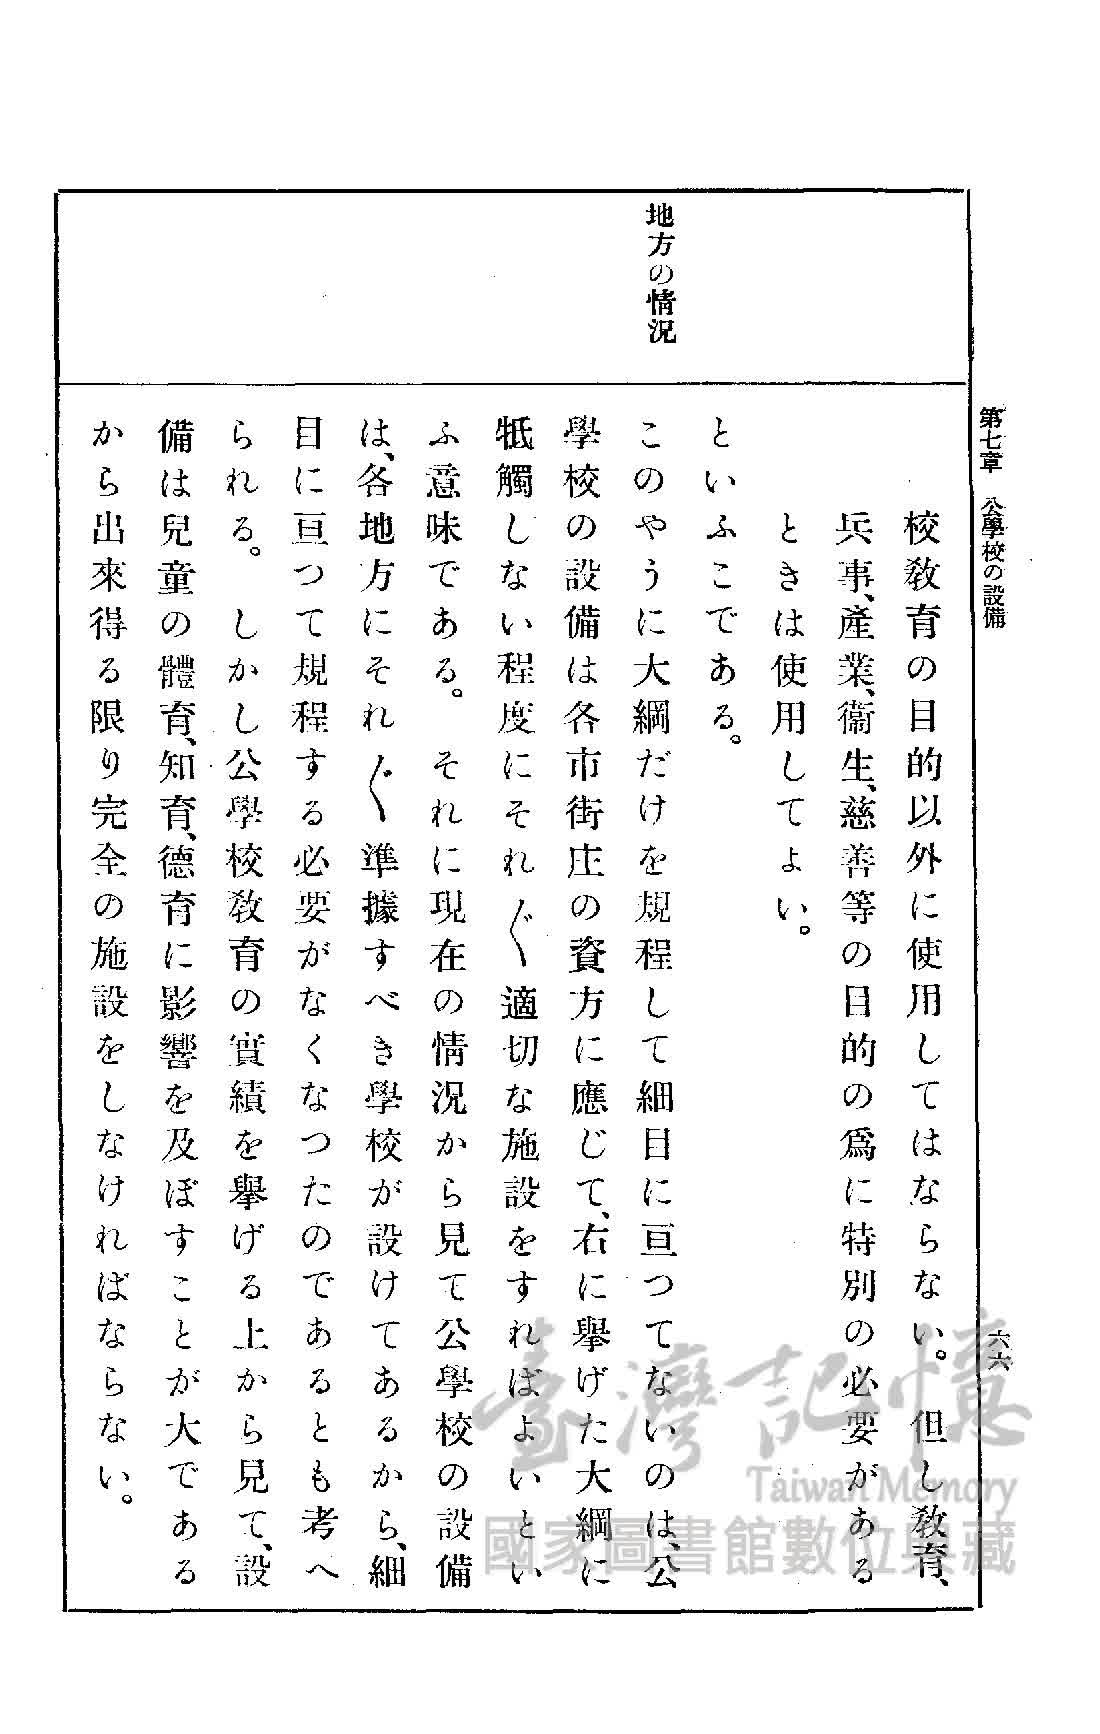 第七章　公學校の設備
六六
地方の情況
校教育の目的以外に使用してはならない。但し教育、
兵事、產業、衞生、慈善等の目的の爲に特別の必要がある
ときは使用してよい。
といふこである。
このやうに大綱だけを規程して細目に亘つてないのは、公
學校の設備は各市街庄の資方に應じて、右に擧げた大綱に
牴觸しない程度にそれ〴〵適切な施設をすればよいとい
ふ意味である。それに現在の情況から見て公學校の設備
は、各地方にそれ〴〵準據すべき學校が設けてあるから、細
目に亘つて規程する必要がなくなつたのであるとも考へ
られる。しかし公學校教育の實績を擧げる上から見て、設
備は兒童の體育、知育、德育に影響を及ぼすことが大である
から出來得る限り完全の施設をしなければならない。
臺灣記憶
Taiwan Memory
國家圖書館數位典藏